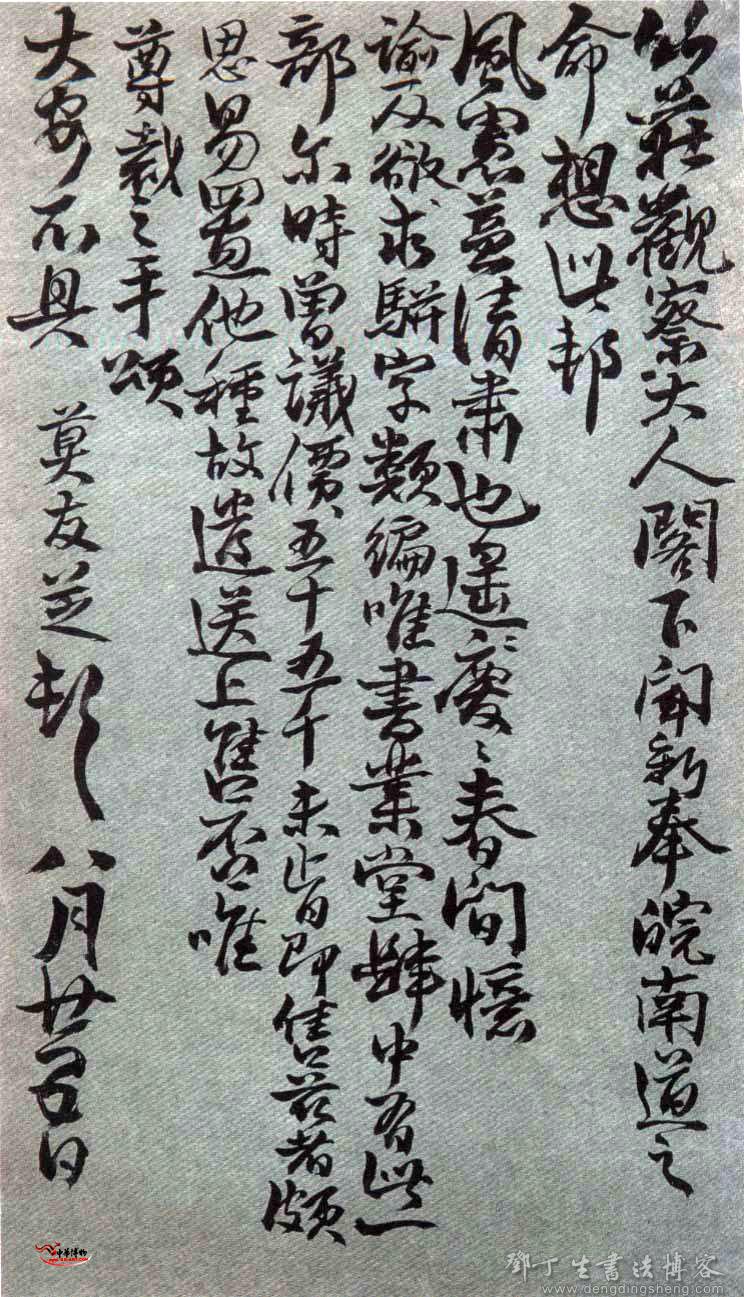 竹莊觀察大人閣下聞新奉皖南道之
命想此邦
風憲益清肅也遙慶〻春間憶
諭及欲求駢字類編唯書業堂肆中有此一
部尔時曾議價五十五千未肯即售茲者頗
思易置他種故遣送上售否唯
尊裁之手頌
大安不具 莫友芝頓 八月廿五日
中華博物
鄧丁生書法博客
www.dengdingsheng.com